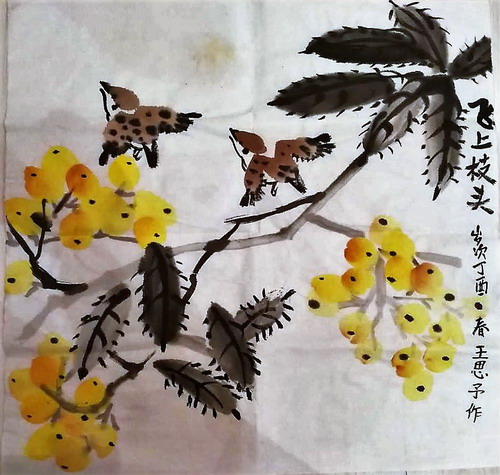 飞上枝头
岁次丁酉·春王思予作